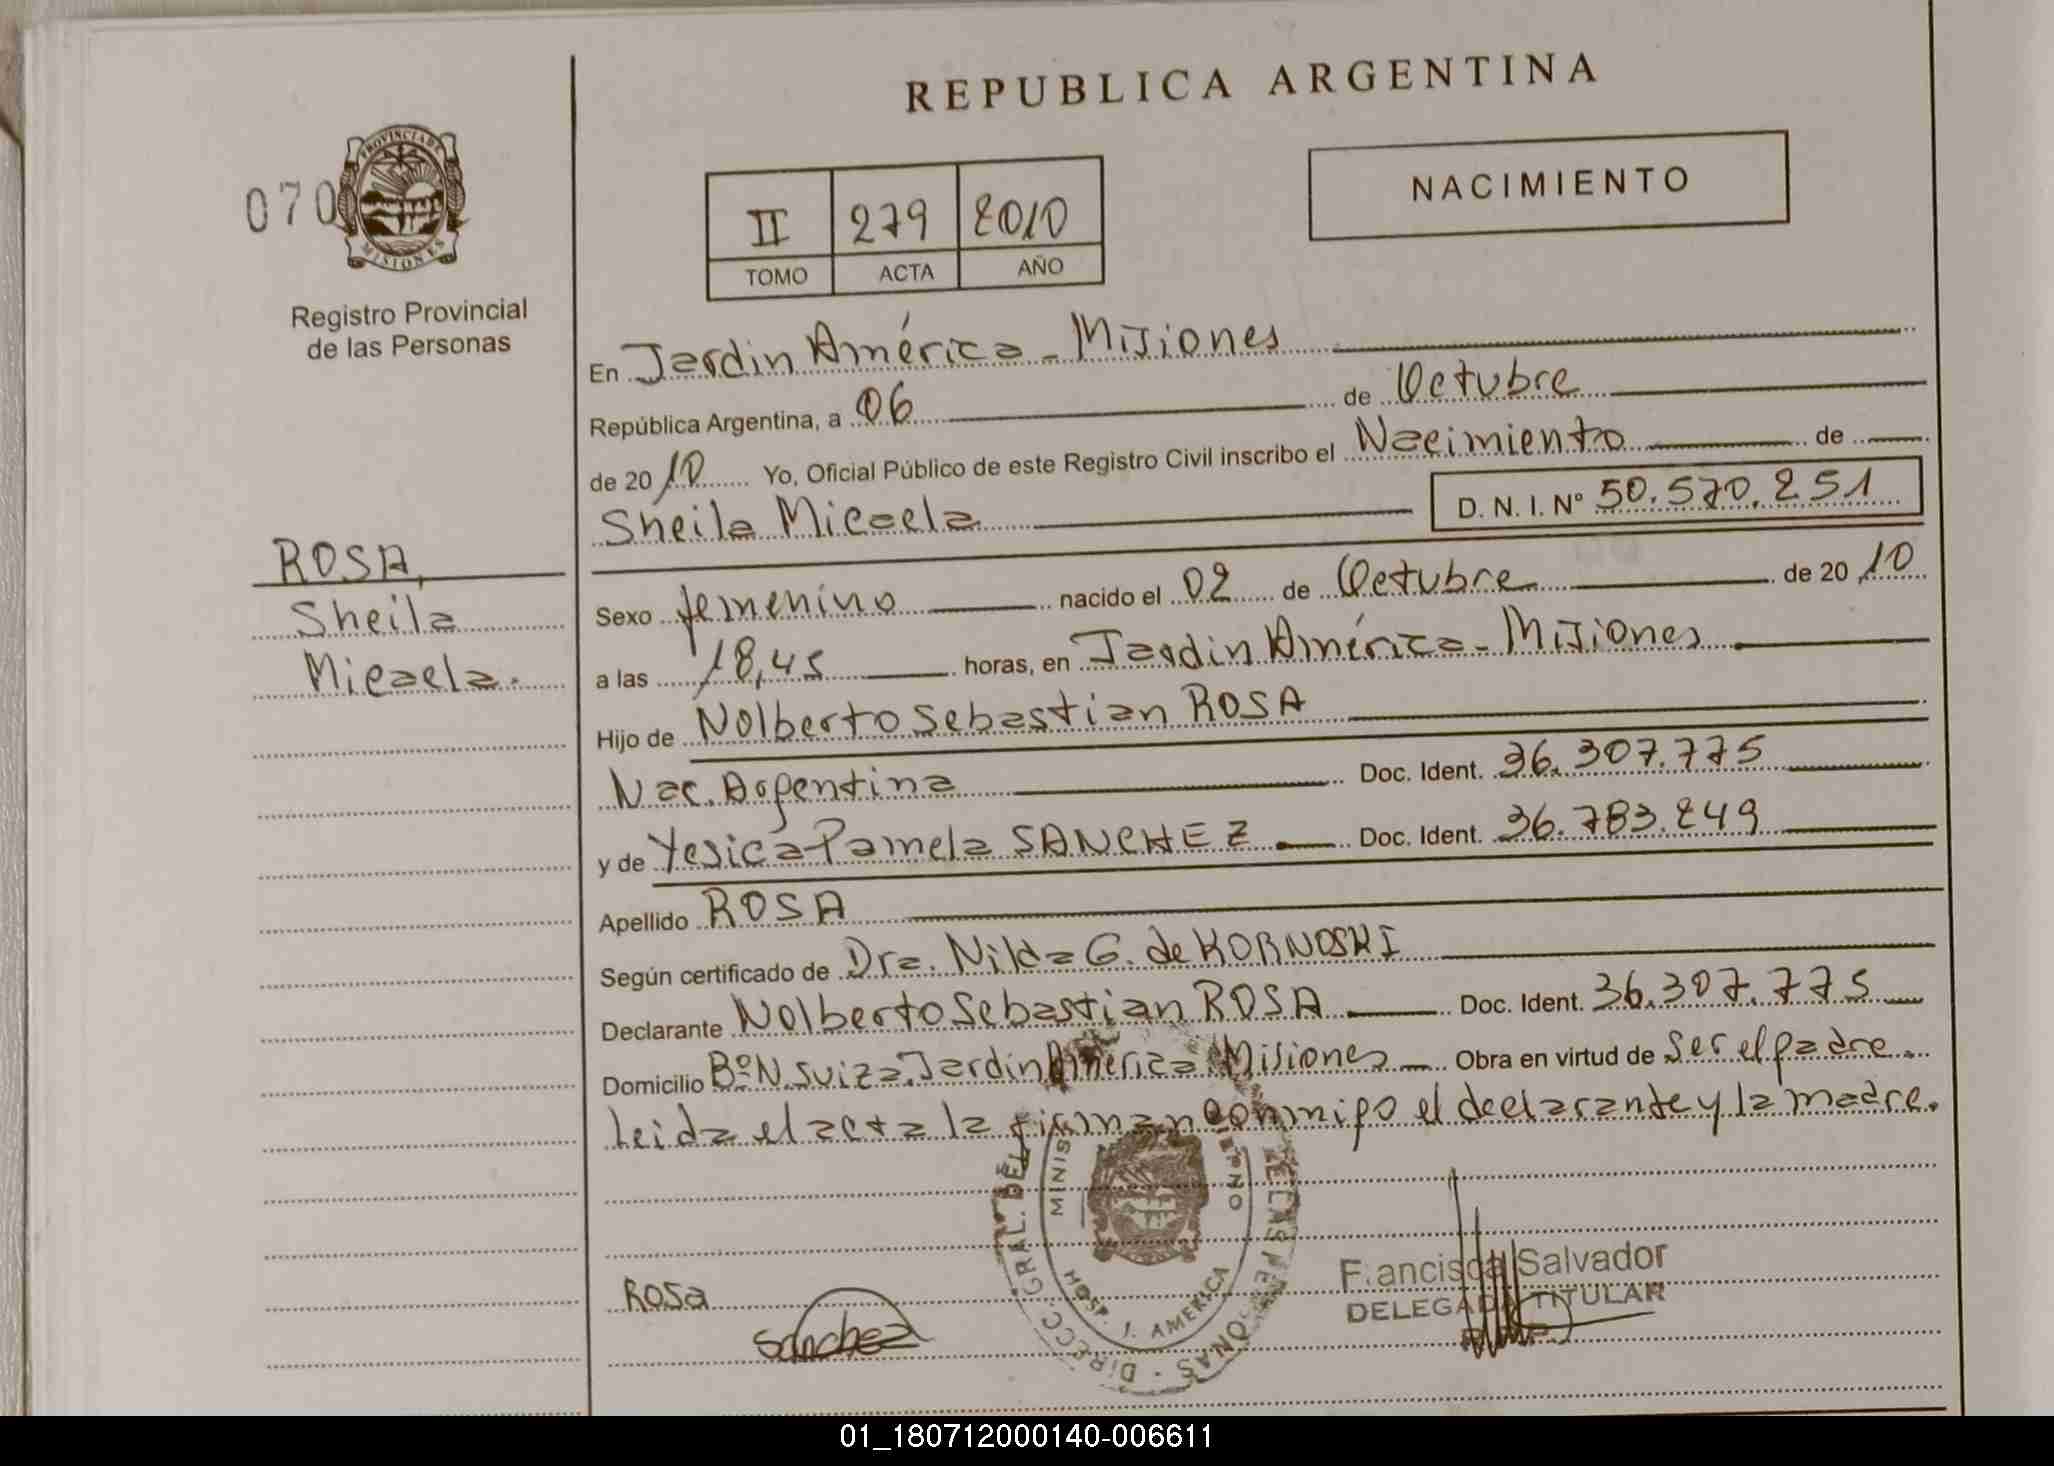 REPUBLICA ARGENTINA
NACIMIENTO
070
PROVINCIA DE
MISIONES
Registro Provincial
de las Personas
II 279 2010
TOMO ACTA AÑO
En Jardin América - Misiones
República Argentina, a 06 de Octubre
de 2010 Yo, Oficial Público de este Registro Civil inscribo el Nacimiento de
Sheila Micaela D. N. I. Nº 50.570.251
ROSA,
Sheila
Micaela.
Sexo femenino nacido el 02 de Octubre de 2010
a las 18,45 horas, en Jardin América - Misiones
Hijo de Nolberto Sebastian ROSA
Nac. Argentina Doc. Ident. 36.307.775
y de Yesica Pamela SANCHEZ Doc. Ident. 36.783.249
Apellido ROSA
Según certificado de Dra. Nilda G. de KORNOSKI
Declarante Nolberto Sebastian ROSA Doc. Ident. 36.307.775
Domicilio Bº N. Suiza. Jardin América Misiones Obra en virtud de Ser el padre.
Leida el acta la firman conmigo el declarante y la madre.
DIRECC. GRAL. DEL DE LAS PERSONAS
MINIS
HOSP. J. AMERICA
Rosa
Sanchez
Francisca Salvador
DELEGADA TITULAR
01_180712000140-006611